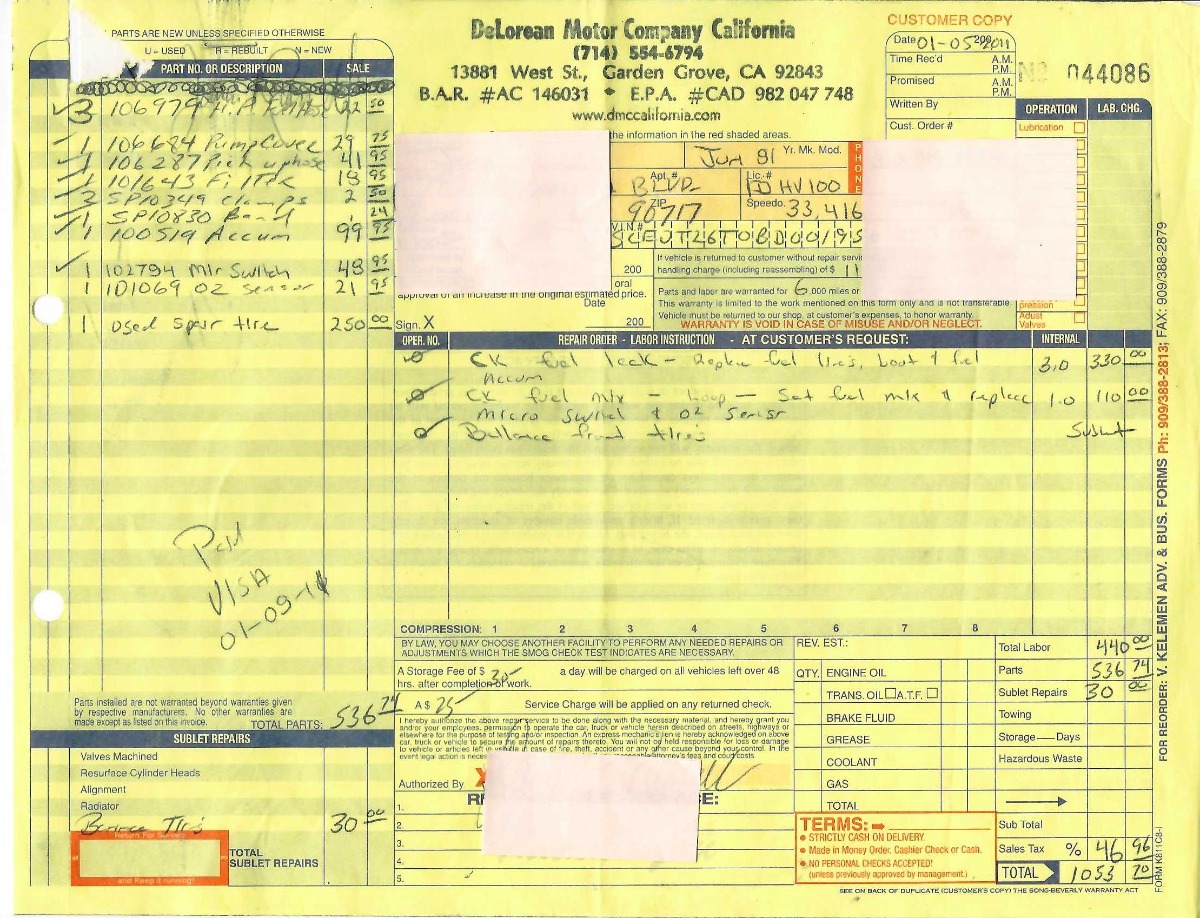 PARTS ARE NEW UNLESS SPECIFIED OTHERWISE
U - USED R - REBUILT N - NEW
PART NO. OR DESCRIPTION SALE
3 106979 22 50
1 106684 Pump Cover 29 75
1 106287 Pick up hose 41 95
1 101643 Filter 18 95
3 SP10349 Clamps 2 50
1 SP10830 Band 24
1 100519 Accum 99 95
1 102794 Micr Switch 48 95
1 101069 O2 Sensor 21 95
1 Used Spar tire 250 00
Paid
VISA
01-09-11
Parts installed are not warranted beyond warranties given
by respective manufacturers. No other warranties are
made except as listed on this invoice.
TOTAL PARTS: 536 74
SUBLET REPAIRS
Valves Machined
Resurface Cylinder Heads
Alignment
Radiator
30 00
Return For Service
and Keep it running!
TOTAL
SUBLET REPAIRS
DeLorean Motor Company California
(714) 554-6794
13881 West St., Garden Grove, CA 92843
B.A.R. #AC 146031 * E.P.A. #CAD 982 047 748
www.dmccalifornia.com
the information in the red shaded areas.
CUSTOMER COPY
Date 01-05-2011
Time Rec'd A.M. P.M.
Promised A.M. P.M.
Written By
Cust. Order #
No 044086
OPERATION LAB. CHG.
Lubrication
Jun 81 Yr. Mk. Mod.
PHONE
BLVD Apt. # Lic. # HV100
ZIP 90717 Speedo. 33,416
V.I.N.# SCEDT26T0BD00195
200
If vehicle is returned to customer without repair
handling charge (including reassembling) of $
oral
approval of an increase in the original estimated price.
Date
Sign. X 200
Parts and labor are warranted for 6,000 miles or
This warranty is limited to the work mentioned on this form only and is not transferable.
Vehicle must be returned to our shop, at customer's expenses, to honor warranty.
WARRANTY IS VOID IN CASE OF MISUSE AND/OR NEGLECT.
pression
Adjust
Valves
OPER. NO. REPAIR ORDER - LABOR INSTRUCTION - AT CUSTOMER'S REQUEST: INTERNAL
CK fuel leak - Replace fuel lines, boot & fuel 3.0 330 00
Accum
CK fuel mix - Set fuel mix & replace 1.0 110 00
Micro Switch & O2 Sensor
Ballance front tire's Sublet
COMPRESSION: 1 2 3 4 5 6 7 8
BY LAW, YOU MAY CHOOSE ANOTHER FACILITY TO PERFORM ANY NEEDED REPAIRS OR
ADJUSTMENTS WHICH THE SMOG CHECK TEST INDICATES ARE NECESSARY.
A Storage Fee of $ 30 a day will be charged on all vehicles left over 48
hrs. after completion of work.
A $ 25 Service Charge will be applied on any returned check.
I hereby authorize the above repair service to be done along with the necessary material, and hereby grant you
and/or your employees, permission to operate the car, truck or vehicle herein described on streets, highways or
elsewhere for the purpose of testing and/or inspection. An express mechanic's lien is hereby acknowledged on above
car, truck or vehicle to secure the amount of repairs thereto. You will not be held responsible for loss or damage
to vehicle or articles left in vehicle in case of fire, theft, accident or any other cause beyond your control. In the
event legal action is attorney's fees and court costs
Authorized By X
1.
2.
3.
4.
5.
REV. EST.:
QTY. ENGINE OIL
TRANS. OIL A.T.F.
BRAKE FLUID
GREASE
COOLANT
GAS
TOTAL
TERMS:
• STRICTLY CASH ON DELIVERY.
• Made in Money Order, Cashier Check or Cash.
• NO PERSONAL CHECKS ACCEPTED!
(unless previously approved by management.)
Total Labor 440 00
Parts 536 74
Sublet Repairs 30 00
Towing
Storage — Days
Hazardous Waste
Sub Total
Sales Tax % 46 96
TOTAL 1053 70
SEE ON BACK OF DUPLICATE (CUSTOMER'S COPY) THE SONG-BEVERLY WARRANTY ACT
FOR REORDER: V. KELEMEN ADV. & BUS. FORMS Ph: 909/388-2813; FAX: 909/388-2879
FORM K811C8-I